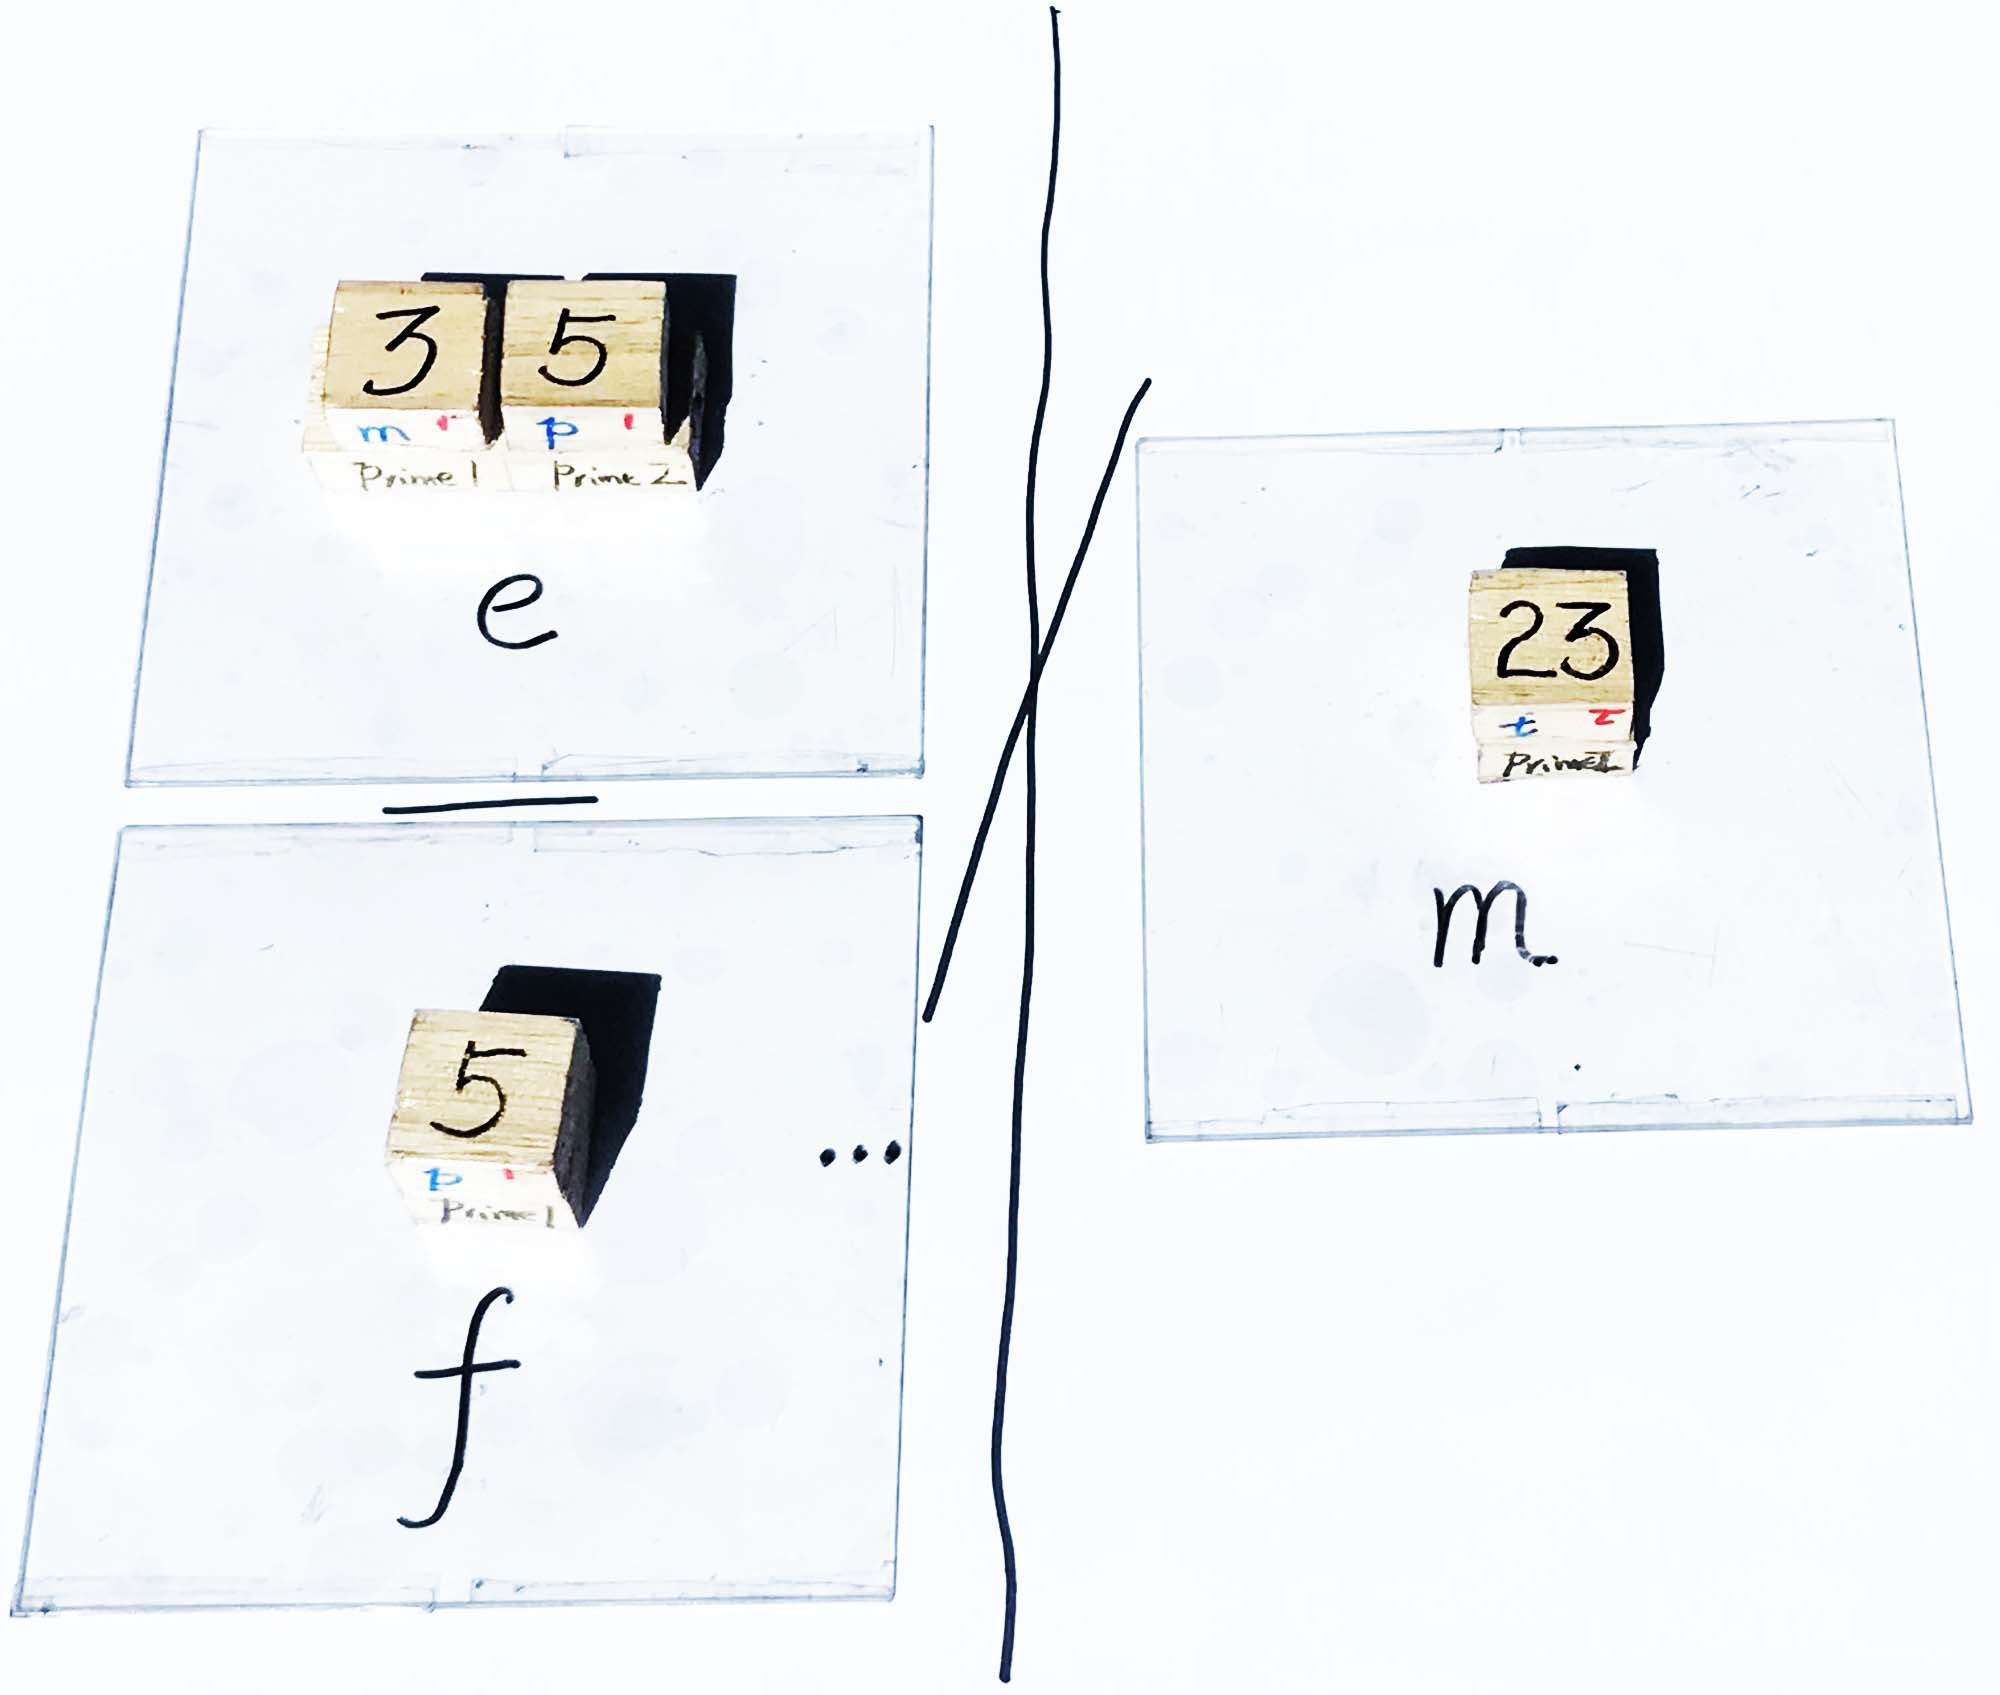 3 5
m r p ı
Prime 1 Prime 2
e
5
p ı
Prime 1
...
f
23
t τ
Prime1
m